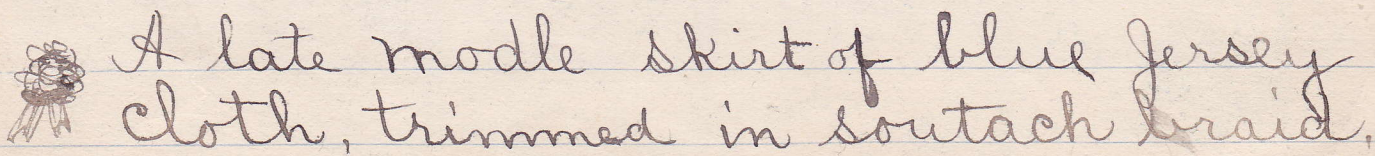 A late modle skirt of blue Jersey
cloth, trimmed in soutach braid.